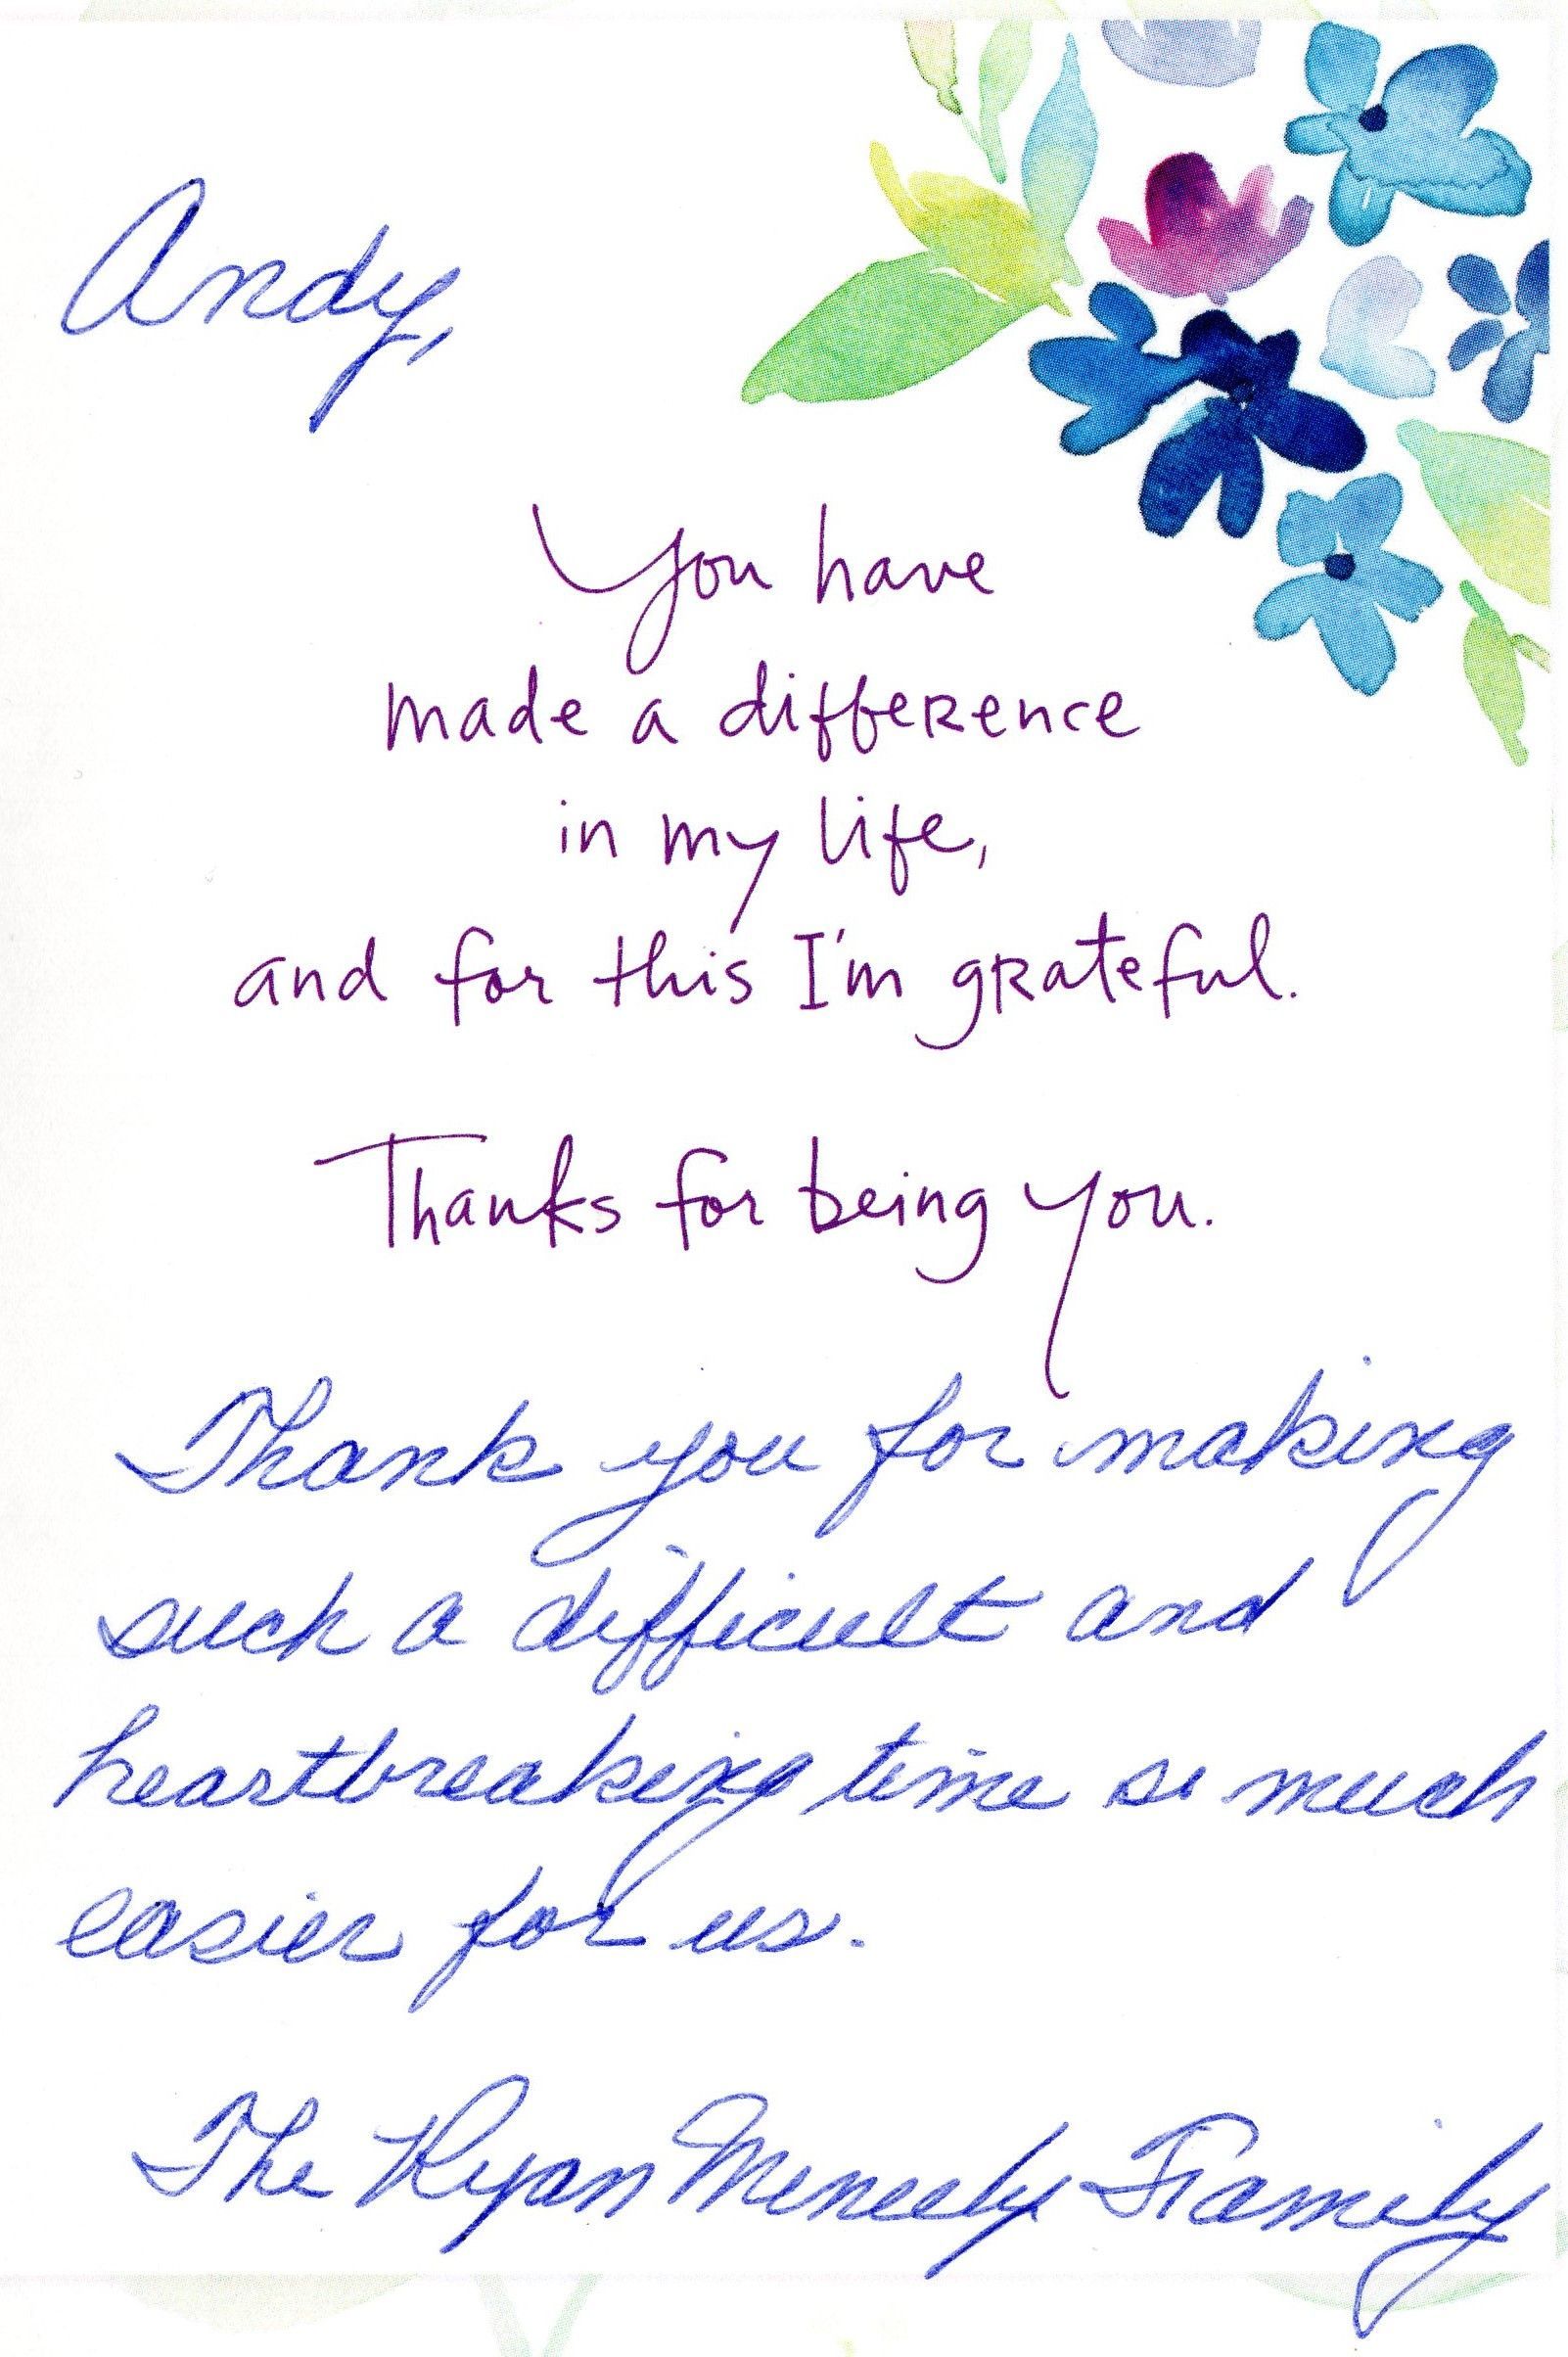 Andy,
You have
made a difference
in my life,
and for this I'm grateful.
Thanks for being you.
Thank you for making
such a difficult and
heartbreaking time so much
easier for us.
The Ryan Meneely Family